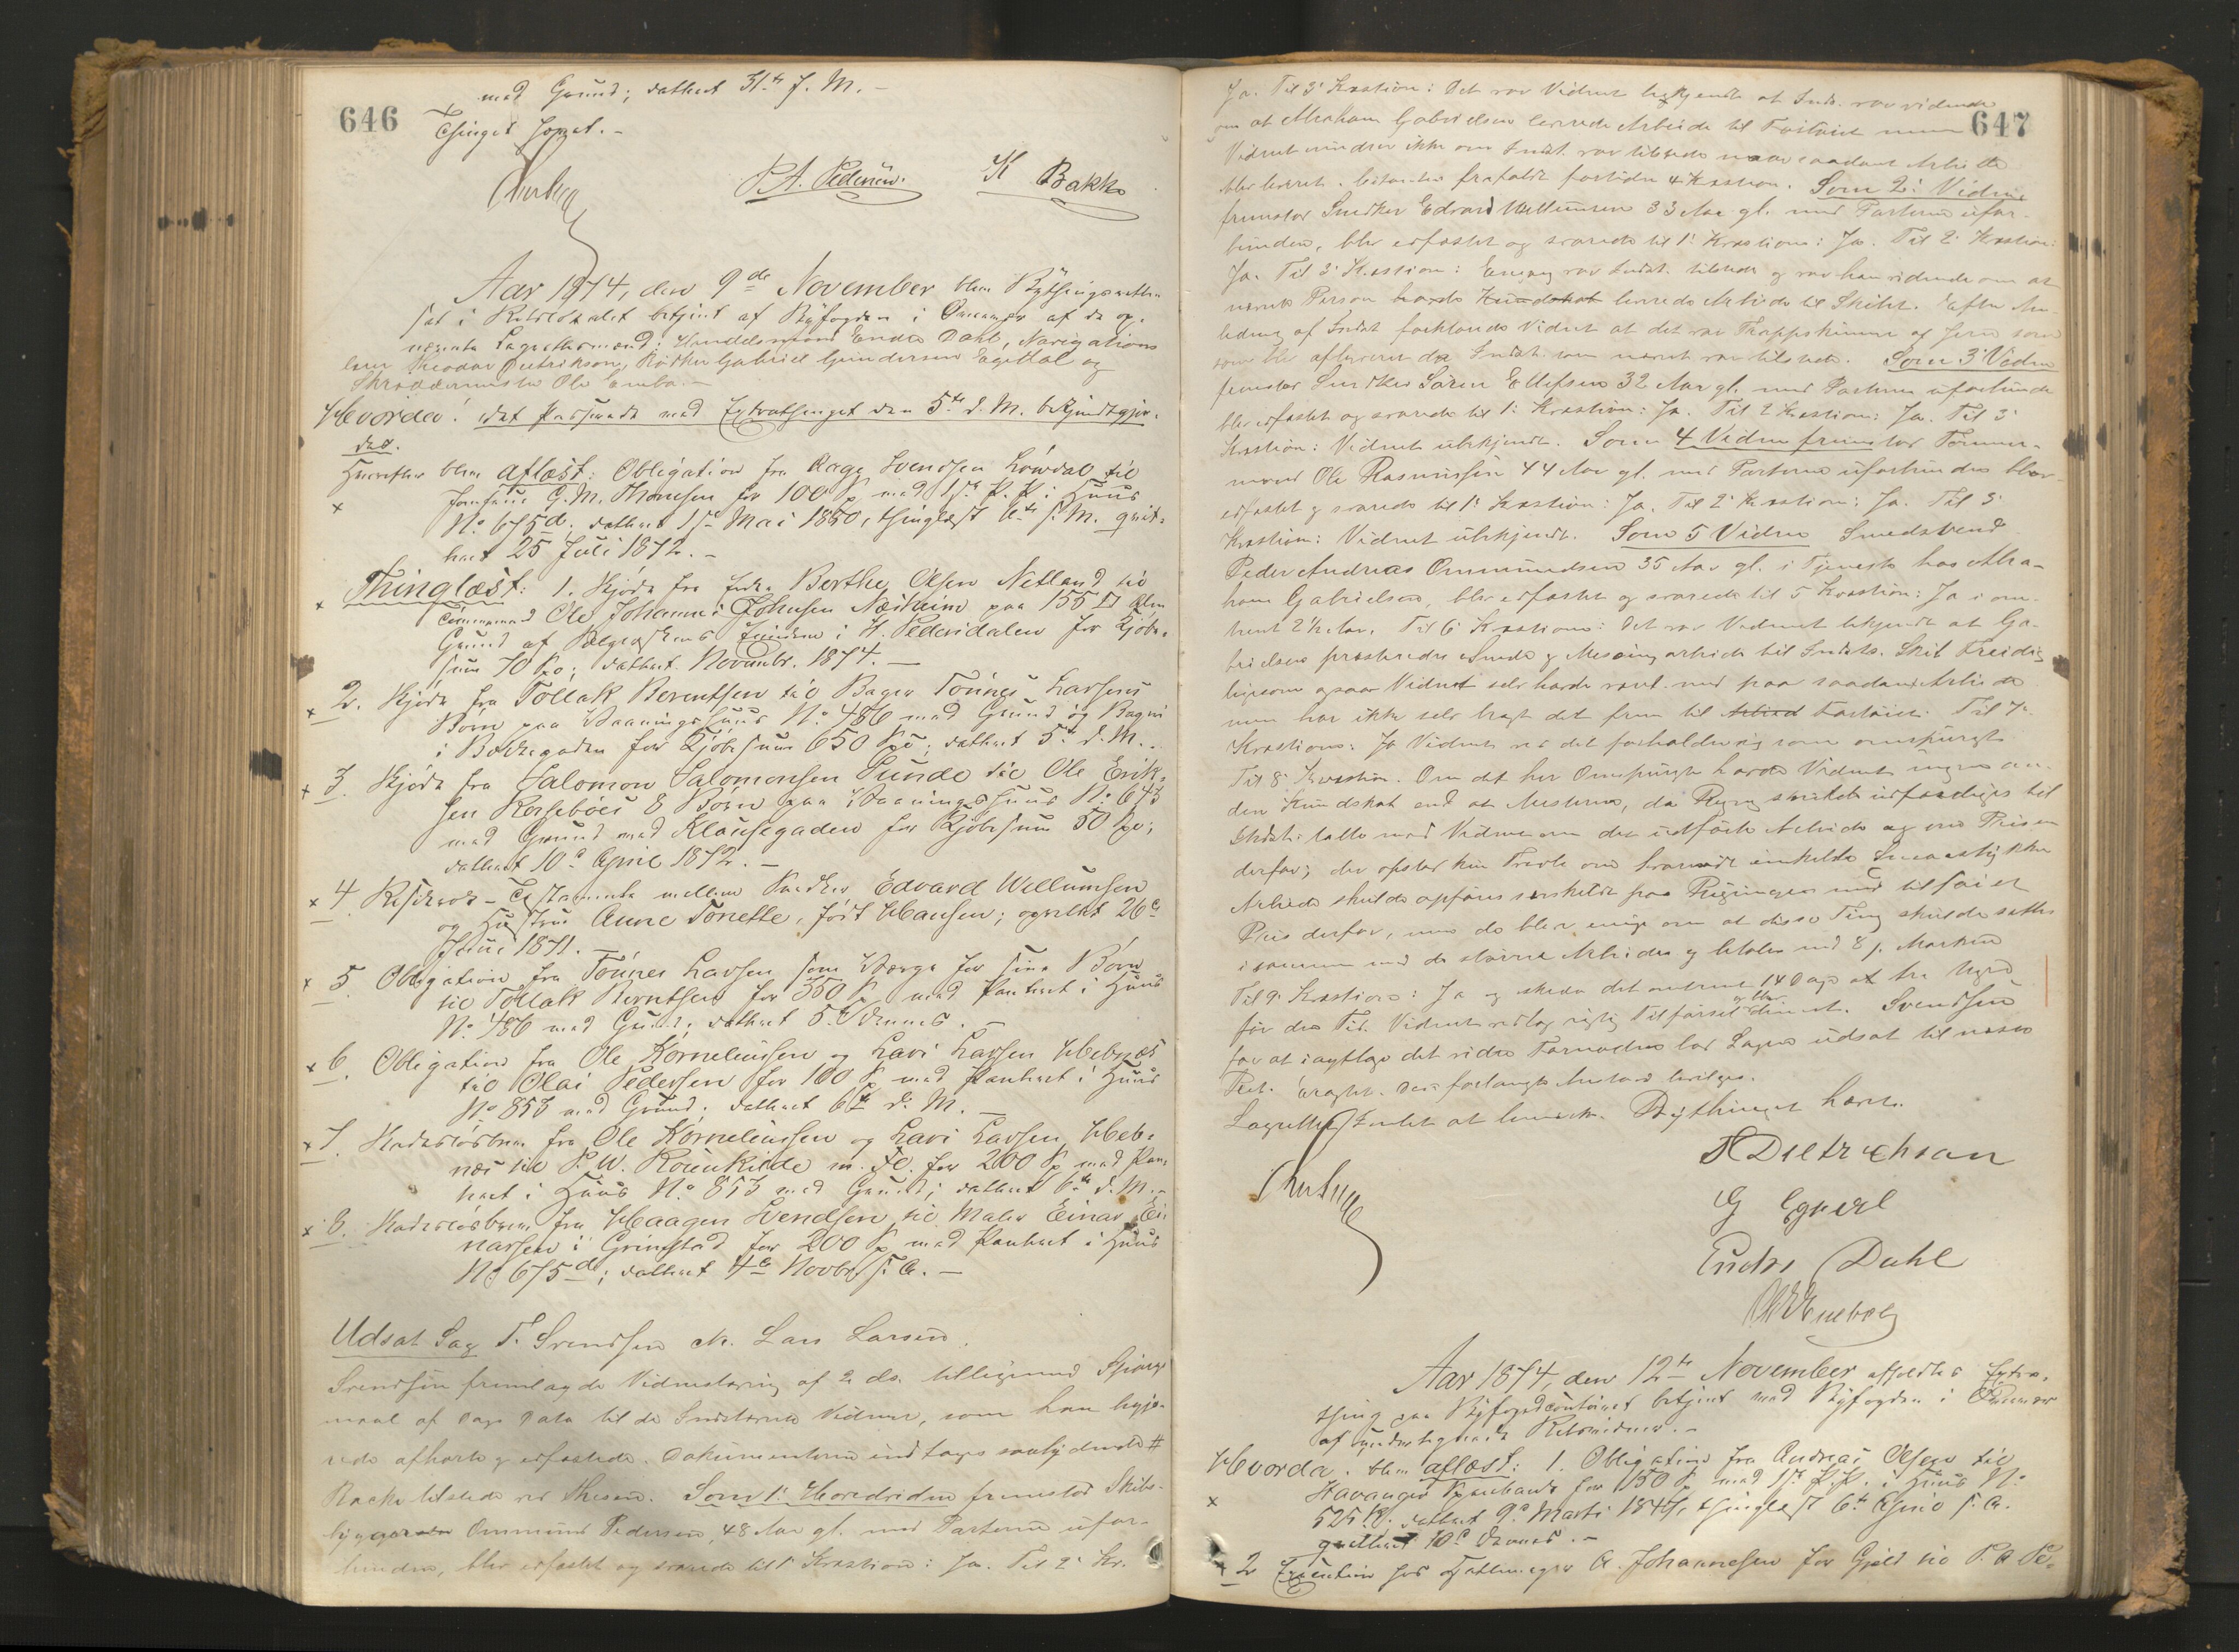 646
med Grund; dateret 31te f. M. -
Thinget hævet. -
P. A. Pedersen. K Bakke
Aar 1874, den 9de November blev Bythingsretten
sat i Retslokalet betjent af Byfogden i Overvær af de op-
nævnte Lagrettesmænd: Handelsmand Endre Dahl, Navigations
lærer Theodor Dietrikson, Gabriel Gundersen Egedal og
Skræddermester Ole
Hvorda: det Passerede ved Extrathinget den 5te d. M. bekjendtgjor-
des.
Hvorefter blev aflæst: Obligation fra Aage Svendsen Løvdal til
Jomfrue G. M. Thomsen for 100 Sp med 1ste P. P. i Huus
No 675d. dateret 1ste Mai 1850, thinglæst 6te s. M. qvit-
teret 25 Juli 1872. -
Thinglæst: 1. Skjøde fra Enke Berthe Olsen Netland til
Tømmermand Ole Johannes Johnsen Næsheim paa 155 □ Alen
Grund af Eiendom i St. Pedersdalen for Kjøbe-
sum 70 Spd; dateret Novembr. 1874. -
2. Skjøde fra Tollak Berentsen til Bager Tönnes Larsens
Börn paa Vaaningshuus No 486 med Grund og Bageri
i Bakkegaden for Kjøbesum 650 Spd; dateret 5te d. M. -
3. Skjøde fra Salomon Salomonsen Sunde til Ole Erik-
sen Børn paa Vaaningshuus No 643
med Grund ved Klausegaden for Kjøbesum 50 Spd;
dateret 10de April 1872. -
4 Reservat-Testamente mellem Snedker Edvard Wellumsen
og Hustru Anne Tonette, født Hansen; oprettet 26de
Juni 1871. -
5. Obligation fra Tönnes Larsen som Værge for sine Børn
til Tollak Berntsen for 350 Sp med Panteret i Huus
No 486 med Grund; dateret 5te dennes. -
6. Obligation fra Ole Kornelinssen og Lavi Larsen Hebnes
til Olai Pedersen for 100 Sp med Panteret i Huus
No 853 med Grund; dateret 6te d. M. -
7. Skadesløsbrev fra Ole Kornelinssen og Lavi Larsen Heb-
nes til P. W. Rosenkilde m. Fl. for 200 Sp med Pan-
teret i Huus No. 853 med Grund; dateret 6te d. M. -
8. Skadesløsbrev fra Haagen Svendsen til Maler Einar Ei-
narsen i Grimstad for 200 Sp med Panteret i Huus
No 675d; dateret 4de Novbr. s. A. -
Udsat Sag T. Svendsen ctr. Lars Larsen.
Svendsen fremlagde Vidnestævning af 2 ds. tilligemed Spørgs-
maal af Dags Dato til de Indstævnte Vidner, som han begjæ-
rede afhørte og edfæstede. Dokumenterne indtages saalydende #
Racke tilstede ved Thesen. Som 1' Hovedvidne fremstod Skibs-
bygger Ommund Pedersen, 48 Aar gl. med Parterne ufor-
bunden, blev edfæstet og svarede til 1' Kvæstion: Ja. Til 2' Kv.
647
Ja. Til 3' Kvæstion: Det var Vidnet bekjendt at Indst. var vidende
om at Abraham Gabrielsen leverede Arbeide til Fartøiet men
Vidnet mindes ikke om Indst. var tilstede naar saadant Arbeide
blev leveret. Citanten frafaldt fortiden 4 Kvæstion. Som 2' Vidne
fremstod Snedker Edvard Wellumsen 33 Aar gl. med Parterne ufor-
bunden, blev edfæstet og svarede til 1' Kvæstion: Ja. Til 2' Kvæstion:
Ja. Til 3' Kvæstion: Engang var Indst. tilstede og var han vidende om at
nævnte Person havde Kundskab leverede Arbeide til Skibet. Efter An-
ledning af Indst forklarede Vidnet at det var Trappskinner af Jern som
som blev afleveret da Indst. som nævnt var tilstede. Som 3' Vidne
fremstod Snedker Søren Ellefsen 32 Aar gl. med Parterne uforbunden
blev edfæstet og svarede til 1' Kvæstion: Ja. Til 2 Kvæstion: Ja. Til 3'
Kvæstion: Vidnet ubekjendt. Som 4 Vidne fremstod Tømmer-
mand Ole Rasmussen 44 Aar gl. med Parterne uforbunden blev
edfæstet og svarede til 1' Kvæstion: Ja. Til 2' Kvæstion: Ja. Til 3'
Kvæstion: Vidnet ubekjendt. Som 5 Vidne Smedsvend
Peder Andreas Ommundsen 35 Aar gl. i Tjeneste hos Abra-
ham Gabrielsen, blev edfæstet og svarede til 5 Kvæstion: Ja i om-
trent 2½ Aar. Til 6' Kvæstion: Det var Vidnet bekjendt at Ga-
brielsen præsterede Smede og Messingarbeide til Indsts. Skib Freidig
ligesom ogsaa Vidnet selv havde været med paa saadant Arbeide
men har ikke selv bragt det frem til Arbeid Fartøiet. Til 7'
Kvæstion: Ja Vidnet ved det forholder sig som omspurgt
Til 8' Kvæstion. Om det her Omspurgte havde Vidnet ingen an-
den Kundskab end at Mesteren, da Regning skulde udfærdiges til
Indst. talte med Vidnet om det udførte Arbeide og om Prisen
derfor; der opstod kun Tvivl om hvorvidt enkelte Smaastykker
Arbeide skulde opføres særskildt paa Regningen med tilføiet
Pris derfor, men de blev enige om at disse Ting skulde sættes
i sammen med de større Arbeider og betales med 8 s. Marken
Til 9' Kvæstion: Ja og skede det omtrent 14 Dage at tre Uger
før den Tid. Vidnet vedtog rigtig Tilførsel og blev dimit. Svendsen
for at iagttage det videre Fornødne lod Sagen udsat til næste
Ret. Eragtet: Den forlangte Anstand bevilges.
Lagretten Intet at bemærke. Bythinget hævet.
T Dietrichson
G Egedal
Endre Dahl
Aar 1874, den 12te November afholdtes Extra-
thing paa Byfogedcontoiret betjent ved Byfogden i Overvær
af undertegnede Retsvidner. -
Hvorda. blev aflæst: 1. Obligation fra Andreas Olsen til
Stavanger Sparebank for 150 Sp med 1ste P. P. i Huus No
525 b. dateret 9de Marts 1847, thinglæst 6te April s. A.
qvitteret 10de dennes. -
2 Execution hos A. Johannesen for Gjæld til P. A Pe-